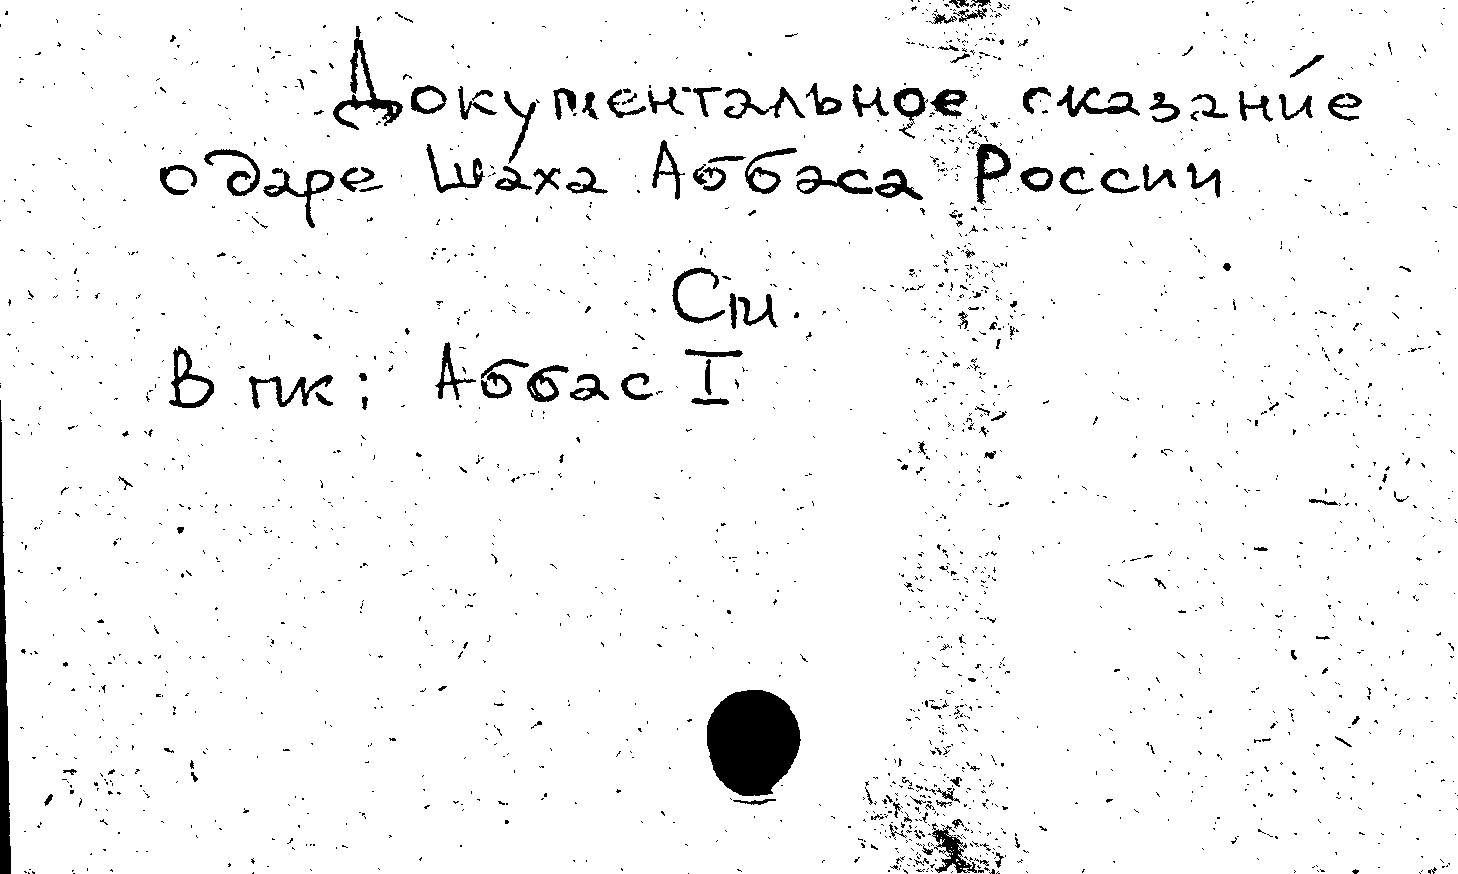 Документальное сказание
о даре Шаха Аббаса России
См.
В пк: Аббас I